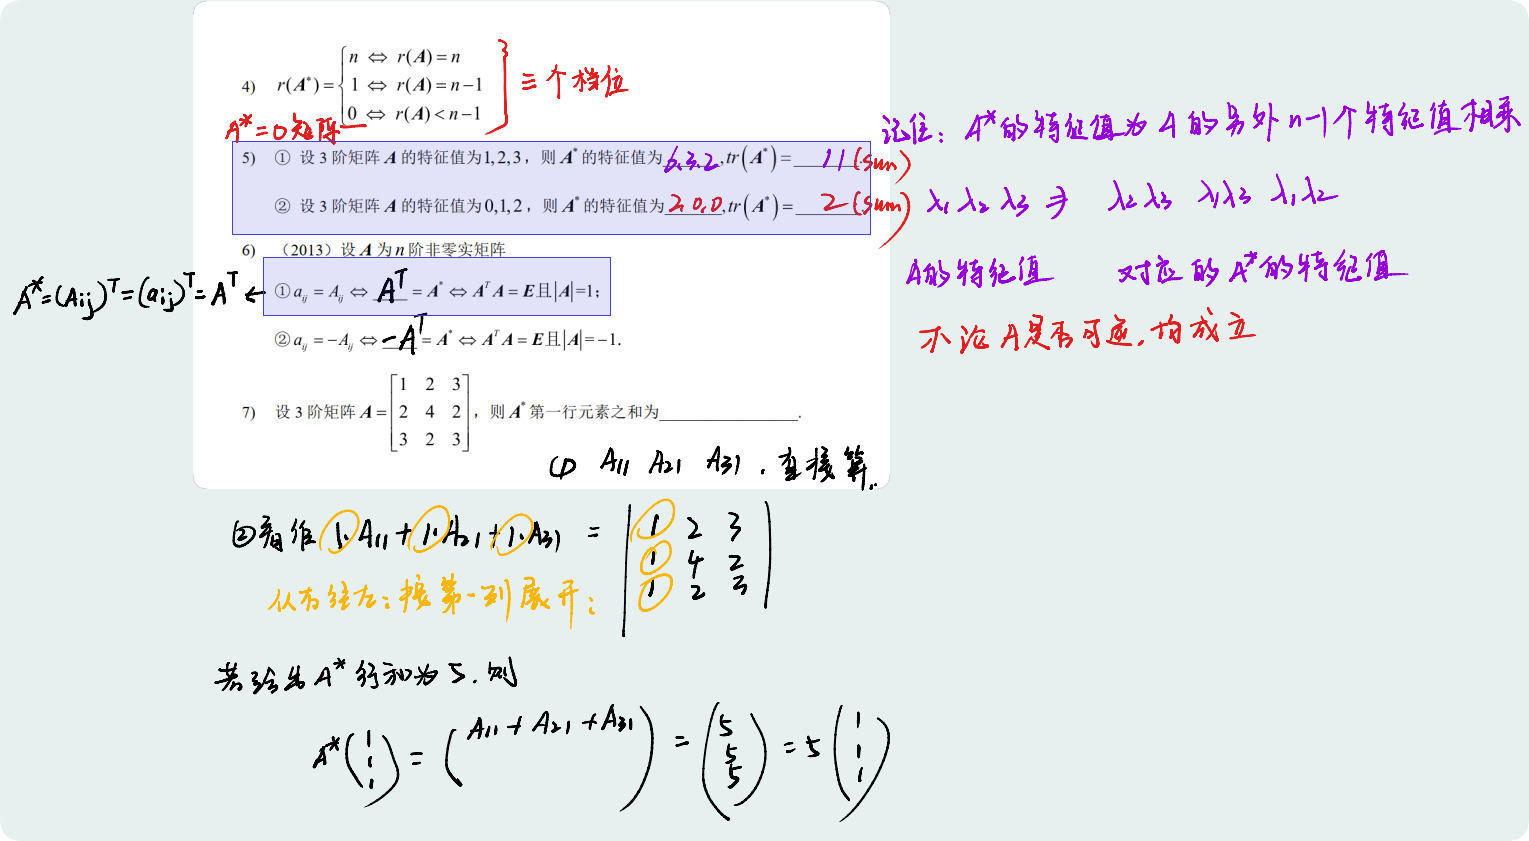 4) r(A*)= { n ⇔ r(A)=n
1 ⇔ r(A)=n-1
0 ⇔ r(A)<n-1
三个档位
A*=0矩阵
5) ① 设 3 阶矩阵 A 的特征值为1,2,3，则 A* 的特征值为 6.3.2 ,tr(A*)= 11 (sum)
② 设 3 阶矩阵 A 的特征值为0,1,2，则 A* 的特征值为 2.0.0 ,tr(A*)= 2 (sum)
记住：A*的特征值为A的另外n-1个特征值相乘
λ1 λ2 λ3 ⇒ λ2λ3 λ1λ3 λ1λ2
A的特征值 对应的A*的特征值
不论A是否可逆,均成立
6) （2013）设 A 为 n 阶非零实矩阵
① aij = Aij ⇔ Aᵀ = A* ⇔ AᵀA = E且|A|=1;
A*=(Aij)ᵀ=(aij)ᵀ=Aᵀ ←
② aij = -Aij ⇔ -Aᵀ = A* ⇔ AᵀA = E且|A|=-1.
7) 设 3 阶矩阵 A = [1 2 3
2 4 2
3 2 3] ，则 A* 第一行元素之和为________.
① A11 A21 A31 . 直接算.
② 1·A11+1·A21+1·A31 = | 1 2 3
1 4 2
1 2 3 |
从右往左：按第一列展开；
若给出A*行和为5.则
A* (1 1 1) = (A11+A21+A31 ) = (5 5 5) = 5 (1 1 1)